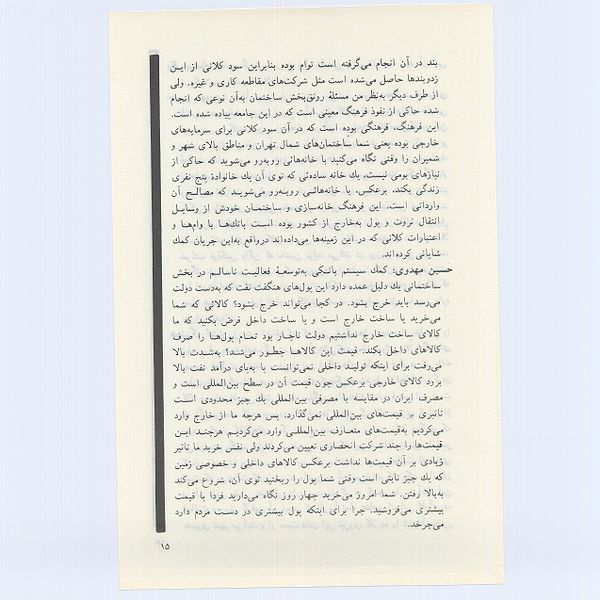 بند در آن انجام می‌گرفته است توام بوده بنابراین سود کلانی از ایـن
زدوبندها حاصل می‌شده است مثل شرکت‌های مقاطعه کاری و غیره. ولی
از طرف دیگر به‌نظر من مسئلهٔ رونق‌بخش ساختمان به‌آن نوعی که انجام
شده حاکی از نفوذ فرهنگ معینی است که در این جامعه پیاده شده است.
این فرهنگ، فرهنگی بوده است که در آن سود کلانی برای سرمایه‌های
خارجی بوده یعنی شما ساختمان‌های شمال تهران و مناطق بالای شهر و
شمیران را وقتی نگاه می‌کنید با خانه‌هائی روبه‌رو می‌شوید که حاکی از
نیازهای بومی نیست، یك خانه ساده‌ئی که توی آن یك خانوادهٔ پنج نفری
زندگی بکند. برعکس، با خانه‌هائـی روبـه‌رو می‌شویـد که مصالـح آن
وارداتی است. این فرهنگ خانه‌سازی و ساختمـان خودش از وسایـل
انتقال ثروت و پول به‌خارج از کشور بوده است بانك‌ها با وام‌ها و
اعتبارات کلانی که در این زمینه‌ها می‌داده‌اند درواقع به‌این جریان کمك
شایانی کرده‌اند.
حسین مهدوی: کمك سیستم بانـکی به‌توسعهٔ فعالیـت ناسالـم در بخش
ساختمانی یك دلیل عمده دارد این پول‌های هنگفت نفت که به‌دست دولت
می‌رسد باید خرج بشود. در کجا می‌تواند خرج بشود؟ کالائی که شما
می‌خرید یا ساخت خارج است و یا ساخت داخل فرض بکنید که ما
کالای ساخت خارج نداشتیم دولت ناچـار بود تمـام پول‌هـا را صـرف
کالاهای داخل بکند. قیمت این کالاهـا چطـور می‌شـد؟ به‌شدت بالا
می‌رفت برای اینکه تولیـد داخلی نمی‌توانست پا به‌پای درآمد نفت بالا
برود کالای خارجی برعکس چون قیمت آن در سطح بین‌المللی است و
مصرف ایران در مقایسه با مصرفی بین‌المللی یك چیز محدودی اسـت
تاثیری بر قیمت‌های بین‌المللی نمی‌گذارد. پس هرچه ما از خارج وارد
می‌کردیم به‌قیمت‌های متعارف بین‌المللـی وارد می‌کردیـم هرچنـد ایـن
قیمت‌ها را چند شرکت انحصاری تعیین می‌کردند ولی نفس خرید ما تاثیر
زیادی بر آن قیمت‌ها نداشت برعکس کالاهای داخلی و خصوصی زمین
که یك چیز ثابتی است وقتی شما پول را ریختید توی آن، شروع می‌کند
به‌بالا رفتن. شما امروز می‌خرید چهار روز نگاه می‌دارید فردا با قیمت
بیشتری می‌فروشید. چرا برای اینکه پول بیشتری در دسـت مردم دارد
می‌چرخد.
۱۵